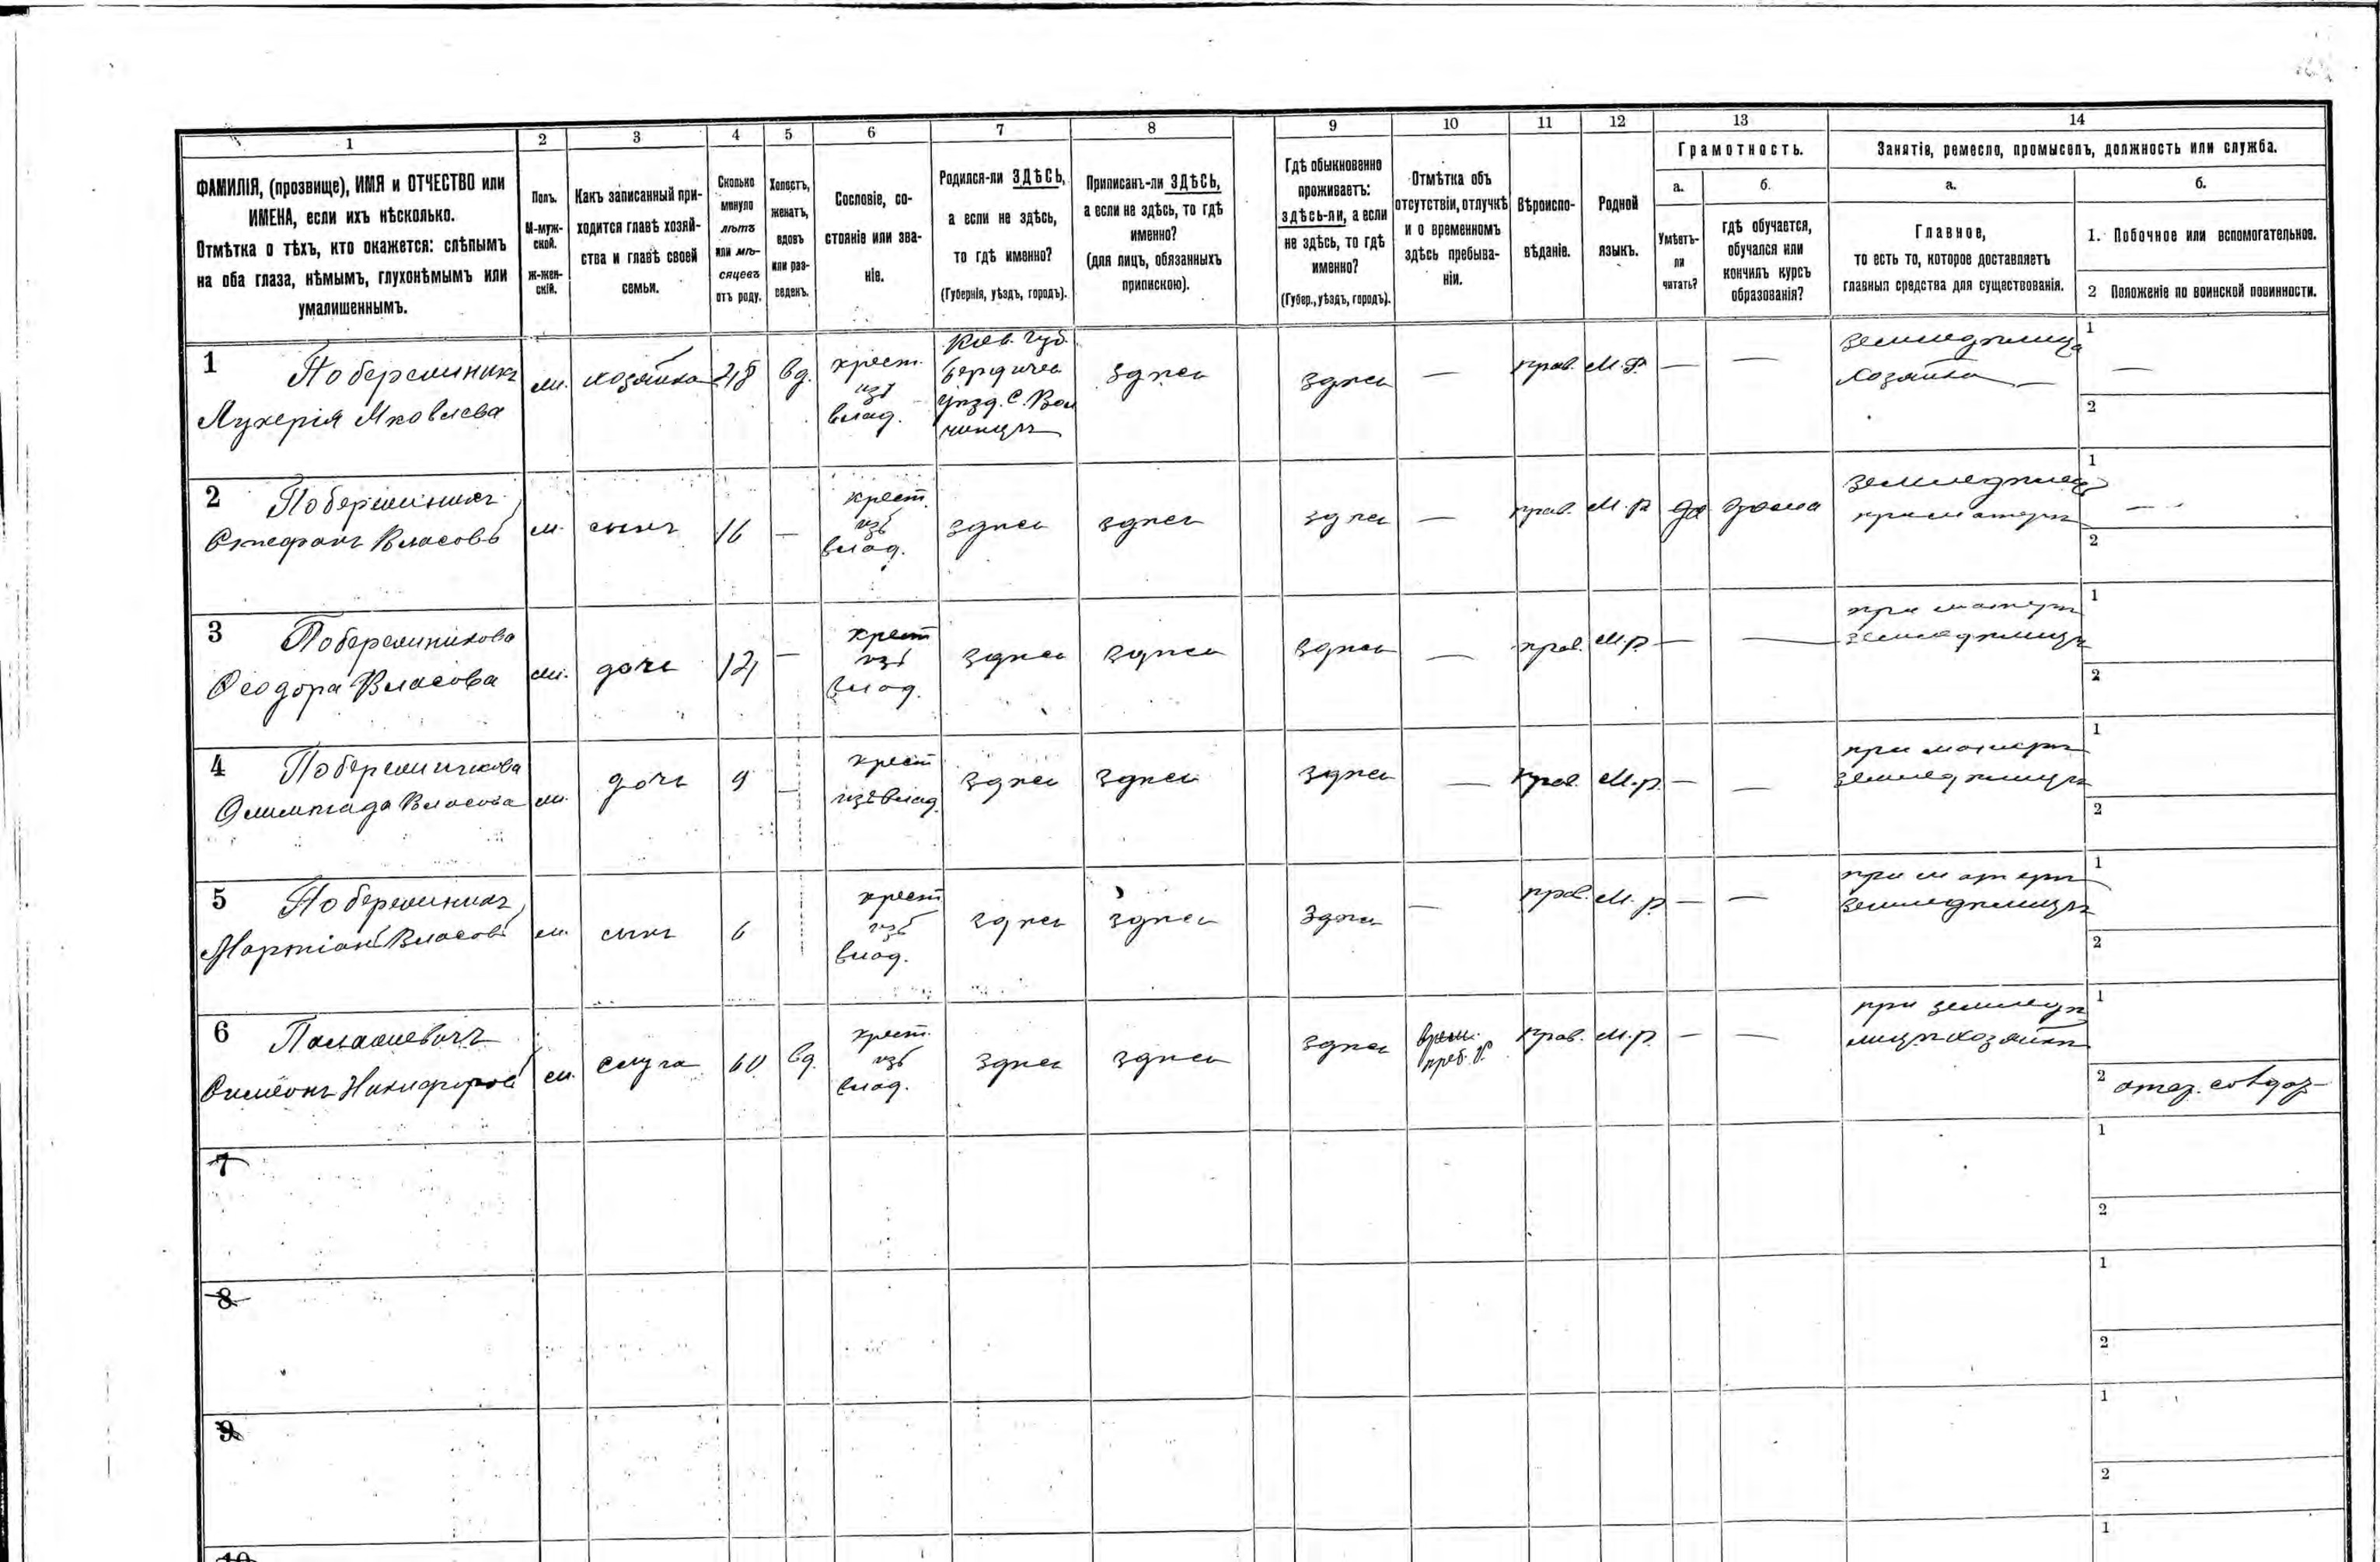 1 2 3 4 5 6 7 8 9 10 11 12 13 14
ФАМИЛІЯ, (прозвище), ИМЯ и ОТЧЕСТВО или
ИМЕНА, если ихъ нѣсколько.
Отмѣтка о тѣхъ, кто окажется: слѣпымъ
на оба глаза, нѣмымъ, глухонѣмымъ или
умалишеннымъ.
Полъ.
М-муж-
ской.
ж-жен-
скій.
Какъ записанный при-
ходится главѣ хозяй-
ства и главѣ своей
семьи.
Сколько
минуло
лѣтъ
или мѣ-
сяцевъ
отъ роду.
Холостъ,
женатъ,
вдовъ
или раз-
веденъ.
Сословіе, со-
стояніе или зва-
ніе.
Родился-ли ЗДѢСЬ,
а если не здѣсь,
то гдѣ именно?
(Губернія, уѣздъ, городъ).
Приписанъ-ли ЗДѢСЬ,
а если не здѣсь, то гдѣ
именно?
(для лицъ, обязанныхъ
припискою).
Гдѣ обыкновенно
проживаетъ:
здѣсь-ли, а если
не здѣсь, то гдѣ
именно?
(Губер., уѣздъ, городъ).
Отмѣтка объ
отсутствіи, отлучкѣ
и о временномъ
здѣсь пребыва-
ніи.
Вѣроиспо-
вѣданіе.
Родной
языкъ.
Грамотность.
а.
Умѣетъ-
ли
читать?
б.
гдѣ обучается,
обучался или
кончилъ курсъ
образованія?
Занятіе, ремесло, промыселъ, должность или служба.
а.
Главное,
то есть то, которое доставляетъ
главныя средства для существованія.
б.
1. Побочное или вспомогательное.
2 Положеніе по воинской повинности.
1
Лукерія Яковлева
хозяйка
вд.
крест.
изъ
влад.
Кіев. губ.
Бердичев
уѣзд. с.
здѣсь
здѣсь
—
прав.
—
—
Хозяйка
1
—
2
2
Стефанъ Власовъ
м.
сынъ
16
—
крест.
изъ
влад.
здѣсь
здѣсь
здѣсь
—
прав.
м.р.
да
дома
при матери
1
—
2
3
Ѳеодора Власова
дочь
12
—
крест
изъ
влад.
здѣсь
здѣсь
здѣсь
—
прав.
м.р.
—
—
при матери
1
2
4
Олимпіада Власова
дочь
9
—
крест
изъ влад.
здѣсь
здѣсь
здѣсь
—
прав.
м.р.
—
—
при матери
1
2
5
Мартіанъ Власовъ
м.
сынъ
6
крест
изъ
влад.
здѣсь
здѣсь
здѣсь
—
прав.
м.р.
—
—
при матери
1
2
6
Симеонъ Никифоровъ
м.
слуга
60
вд.
крест.
изъ
влад.
здѣсь
здѣсь
здѣсь
врем.
преб.
прав.
м.р.
—
—
при
1
2
7
1
2
8
1
2
9
1
2
10
1